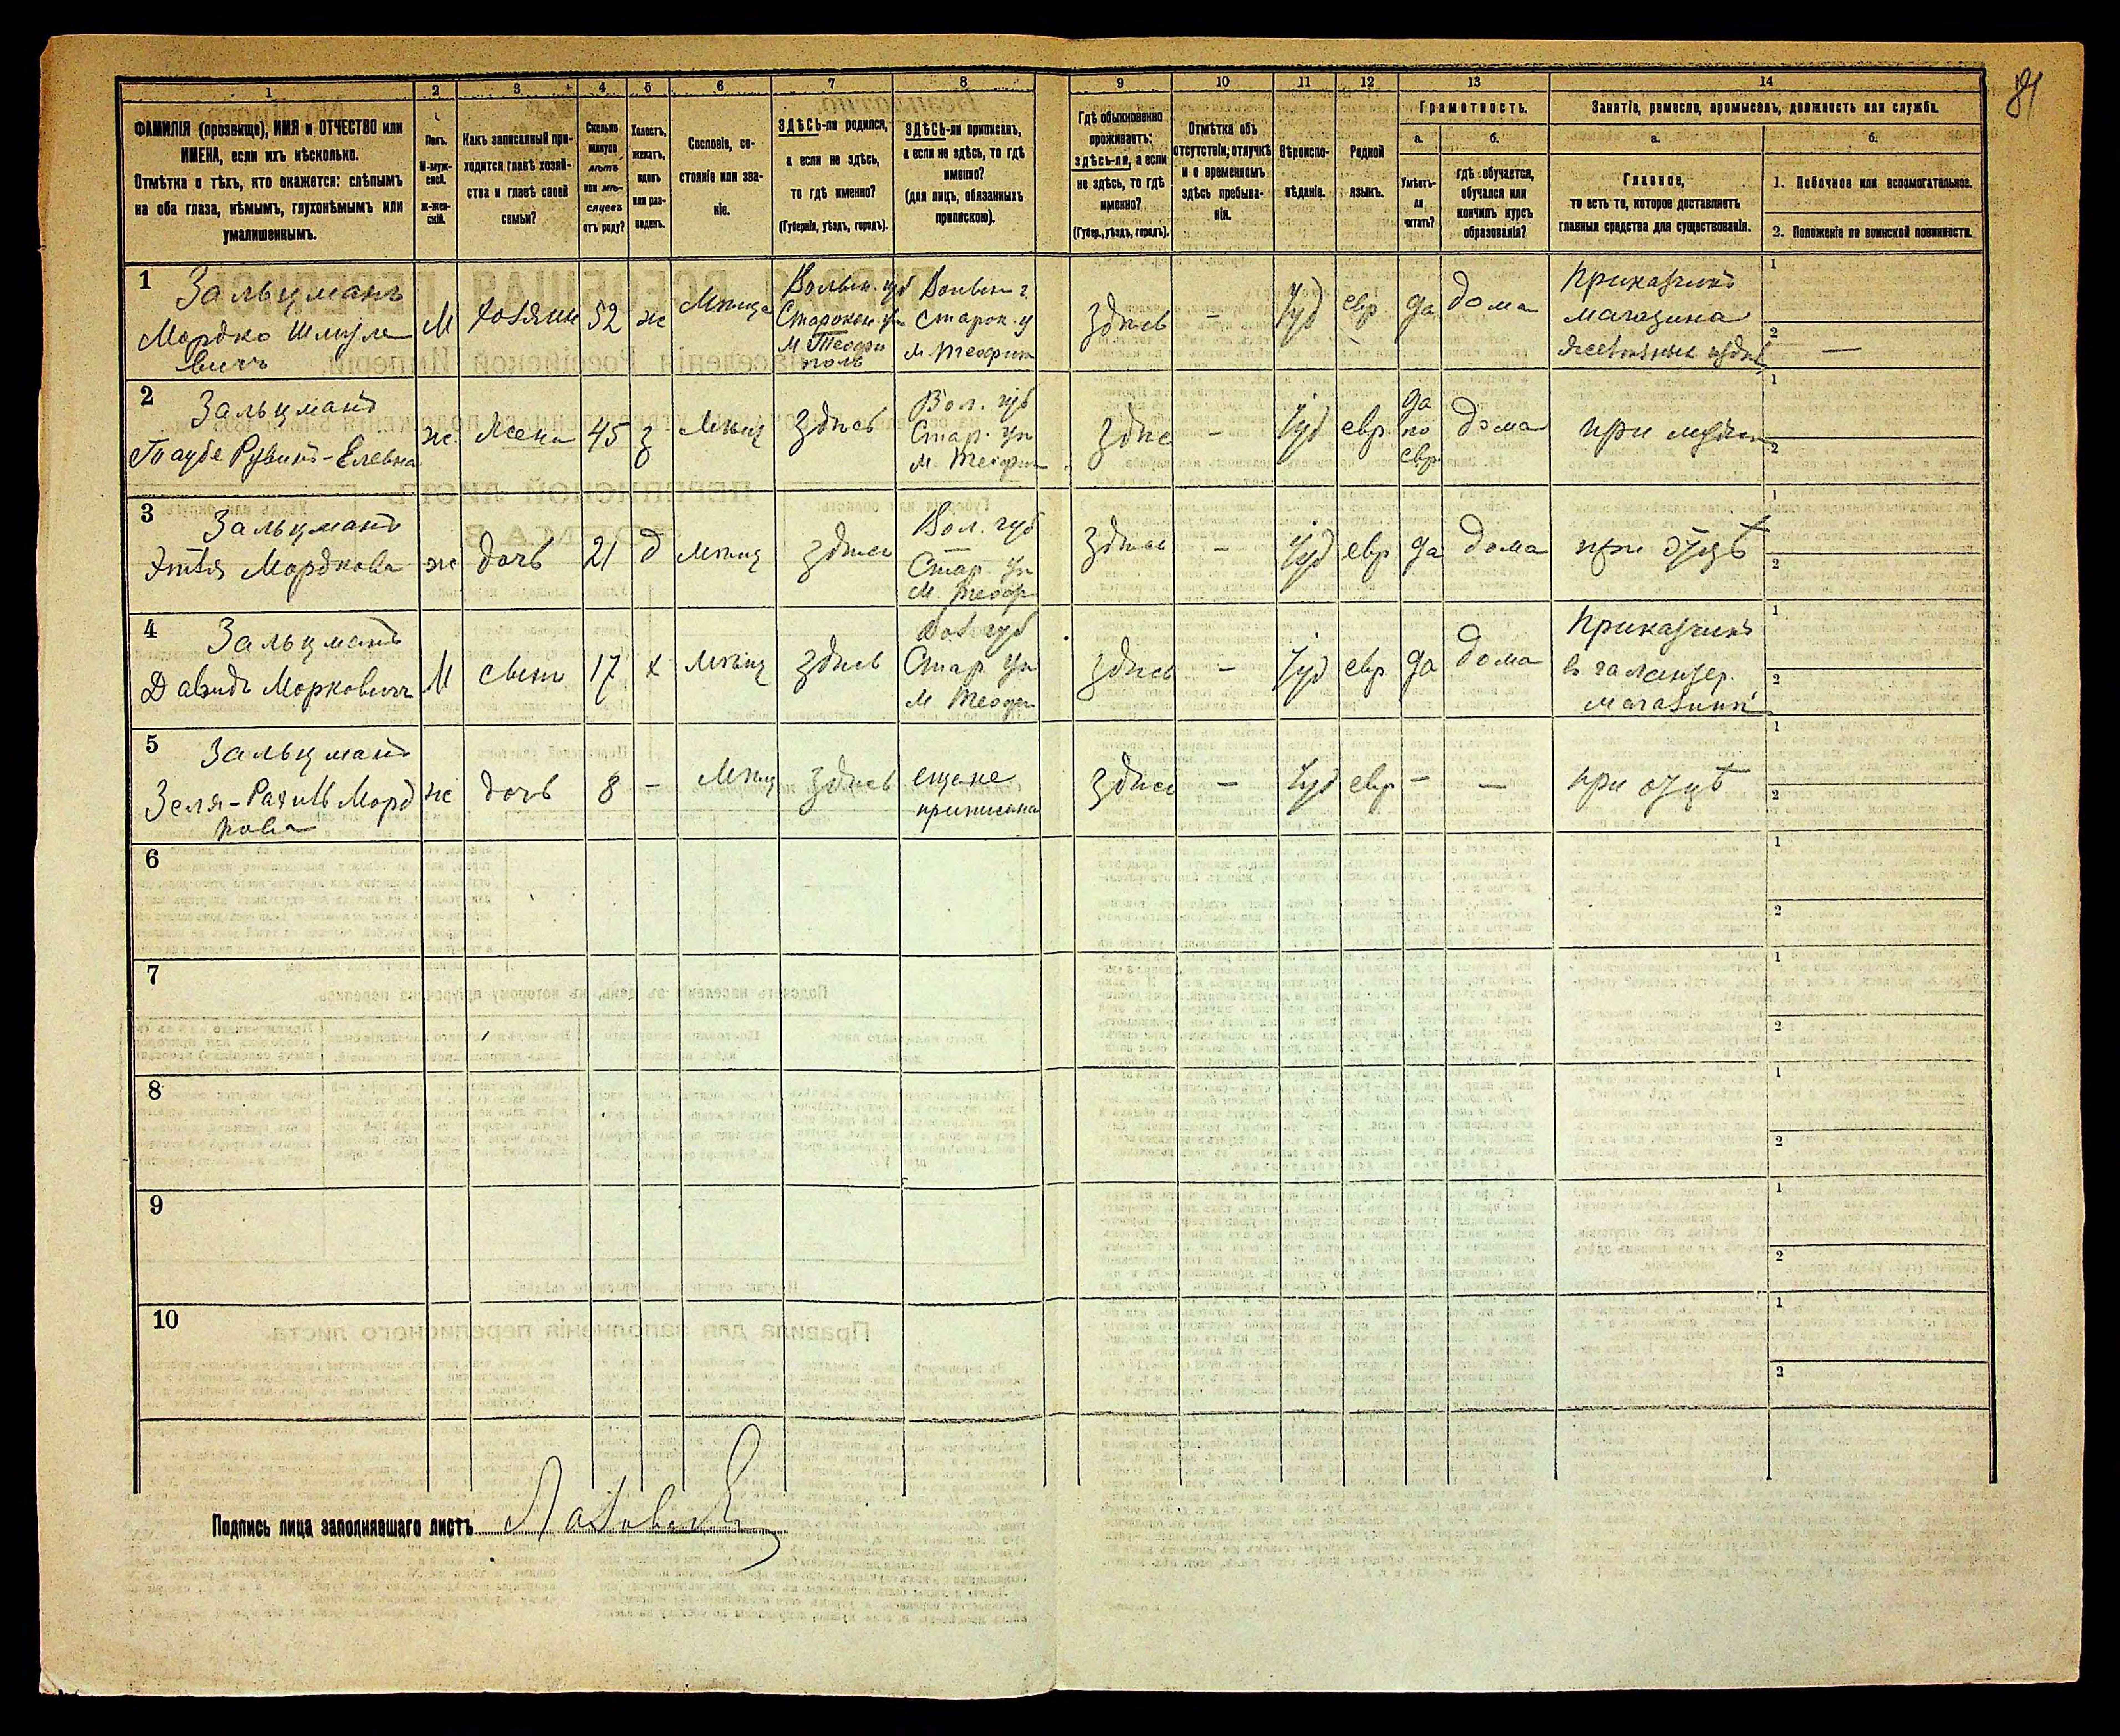 81
1 2 3 4 5 6 7 8 9 10 11 12 13 14
ФАМИЛІЯ (прозвище), ИМЯ и ОТЧЕСТВО или
ИМЕНА, если ихъ нѣсколько.
Отмѣтка о тѣхъ, кто окажется: слѣпымъ
на оба глаза, нѣмымъ, глухонѣмымъ или
умалишеннымъ.
Полъ.
М-муж-
ской.
ж-жен-
скій.
Какъ записанный при-
ходится главѣ хозяй-
ства и главѣ своей
семьи?
Сколько
минуло
лѣтъ
или мѣ-
сяцевъ
отъ роду?
Холостъ,
женатъ,
вдовъ
или раз-
веденъ.
Сословіе, со-
стояніе или зва-
ніе.
ЗДѢСЬ-ли родился,
а если не здѣсь,
то гдѣ именно?
(Губернія, уѣздъ, городъ).
ЗДѢСЬ-ли приписанъ,
а если не здѣсь, то гдѣ
именно?
(для лицъ, обязанныхъ
припискою).
Гдѣ обыкновенно
проживаетъ:
здѣсь-ли, а если
не здѣсь, то гдѣ
именно?
(Губер., уѣздъ, городъ).
Отмѣтка объ
отсутствіи, отлучкѣ
и о временномъ
здѣсь пребыва-
ніи.
Вѣроиспо-
вѣданіе.
Родной
языкъ.
Грамотность.
а.
Умѣетъ-
ли
читать?
б.
гдѣ обучается,
обучался или
кончилъ курсъ
образованія?
Занятіе, ремесло, промыселъ, должность или служба.
а.
Главное,
то есть то, которое доставляетъ
главныя средства для существованія.
б.
1. Побочное или вспомогательное.
2. Положеніе по воинской повинности.
1
Зальцманъ
Мордко Шмуле
вичъ
М
хозяин
52
ж
Мѣща
Волын. губ
Старокон. у
М Теофи
поль
Волын г.
Старок. у
М. Теофип
здѣсь
-
Iуд
евр
да
дома
Приказчикъ
магазина
1
2
—
2
Зальцманъ
Таубе Рувинъ-Елевна
ж
жена
45
з
Мѣщ
здѣсь
Вол. губ
Стар. у
М. Теофип
здѣс
-
Iуд
евр
да
по
евр
дома
при мужѣ
1
2
3
Зальцманъ
Этля Мордкова
ж
дочь
21
д
мѣщ
здѣсь
Вол. губ
Стар у
М. Теоф
здѣсь
-
Iуд
евр
да
дома
при отцѣ
1
2
4
Зальцманъ
Давидъ Морковичъ
М
сынъ
17
х
мѣщ
здѣсь
Вол губ
Стар у
М Теофи
здѣсь
-
Iуд
евр
да
дома
Приказчикъ
в галантер.
магазинѣ
1
2
5
Зальцманъ
Зеля-Рахиль Морд
кова
ж
дочь
8
-
Мѣщ
здѣсь
еще не
приписана
здѣсь
-
Iуд
евр
-
-
при отцѣ
1
2
6
1
2
7
1
2
8
1
2
9
1
2
10
1
2
Подпись лица заполнявшаго листъ